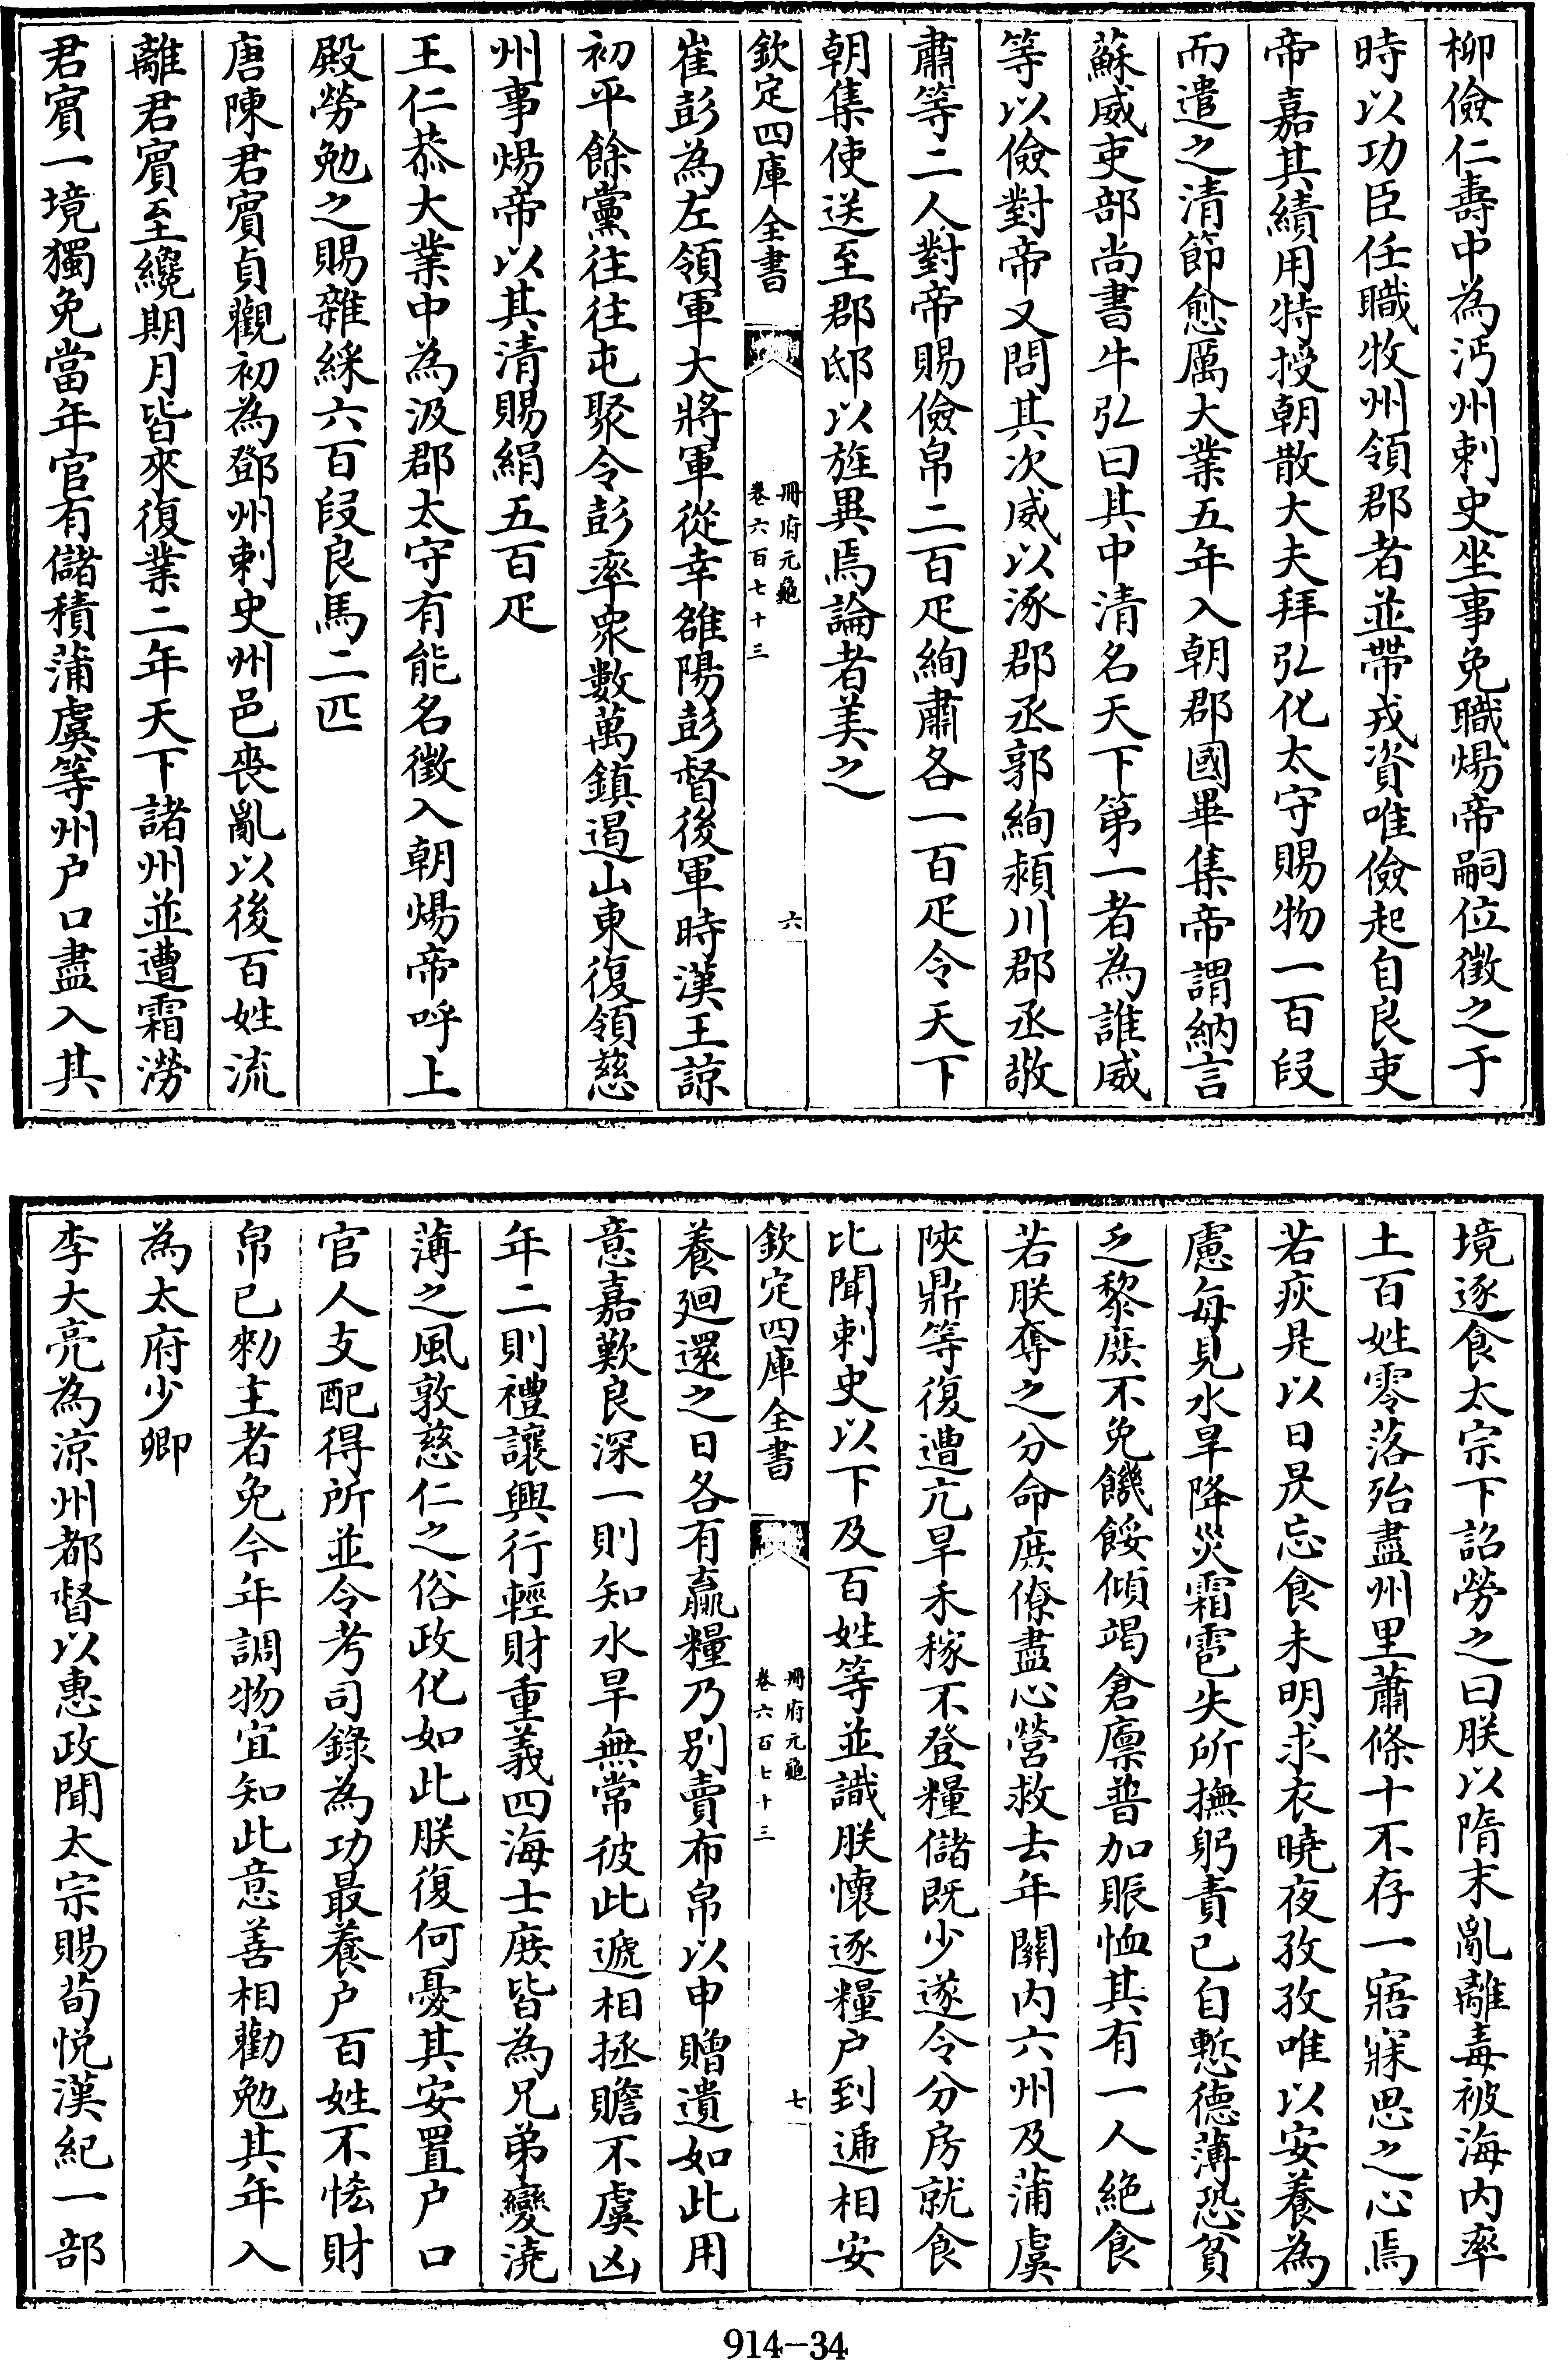 柳儉仁壽中為沔州刺史坐事免職煬帝嗣位徵之于
時以功臣任職牧州領郡者並帶戎資唯儉起自良吏
帝嘉其績用特授朝散大夫拜弘化太守賜物一百段
而遣之清節愈厲大業五年入朝郡國畢集帝謂納言
蘇威吏部尚書牛弘曰其中清名天下第一者為誰威
等以儉對帝又問其次威以涿郡丞郭絢潁川郡丞敬
肅等二人對帝賜儉帛二百疋絢肅各一百疋令天下
朝集使送至郡邸以旌異焉論者美之
欽定四庫全書
冊府元龜
卷六百七十三
六
崔彭為左領軍大將軍從幸雒陽彭督後軍時漢王諒
初平餘黨往往屯聚令彭率衆數萬鎮遏山東復領慈
州事煬帝以其清賜絹五百疋
王仁恭大業中為汲郡太守有能名徵入朝煬帝呼上
殿勞勉之賜雜綵六百段良馬二匹
唐陳君賓貞觀初為鄧州刺史州邑喪亂以後百姓流
離君賓至纔期月皆來復業二年天下諸州並遭霜澇
君賓一境獨免當年官有儲積蒲虞等州户口盡入其
境逐食太宗下詔勞之曰朕以隋末亂離毒被海内率
土百姓零落殆盡州里蕭條十不存一寤寐思之心焉
若疚是以日昃忘食未明求衣曉夜孜孜唯以安養為
慮每見水旱降災霜雹失所撫躬責己自慙德薄恐貧
乏黎庶不免饑餒傾竭倉廪普加賑恤其有一人絶食
若朕奪之分命庶僚盡心營救去年關内六州及蒲虞
陝鼎等復遭亢旱禾稼不登糧儲既少遂令分房就食
比聞刺史以下及百姓等並識朕懷逐糧户到逓相安
欽定四庫全書
冊府元龜
卷六百七十三
七
養廻還之日各有贏糧乃别賣布帛以申贈遺如此用
意嘉歎良深一則知水旱無常彼此遞相拯贍不虞凶
年二則禮讓興行輕財重義四海士庶皆為兄弟變澆
薄之風敦慈仁之俗政化如此朕復何憂其安置户口
官人支配得所並令考司錄為功最養户百姓不恡財
帛已勑主者免今年調物宜知此意善相勸勉其年入
為太府少卿
李大亮為涼州都督以惠政聞太宗賜荀悦漢紀一部
914-34